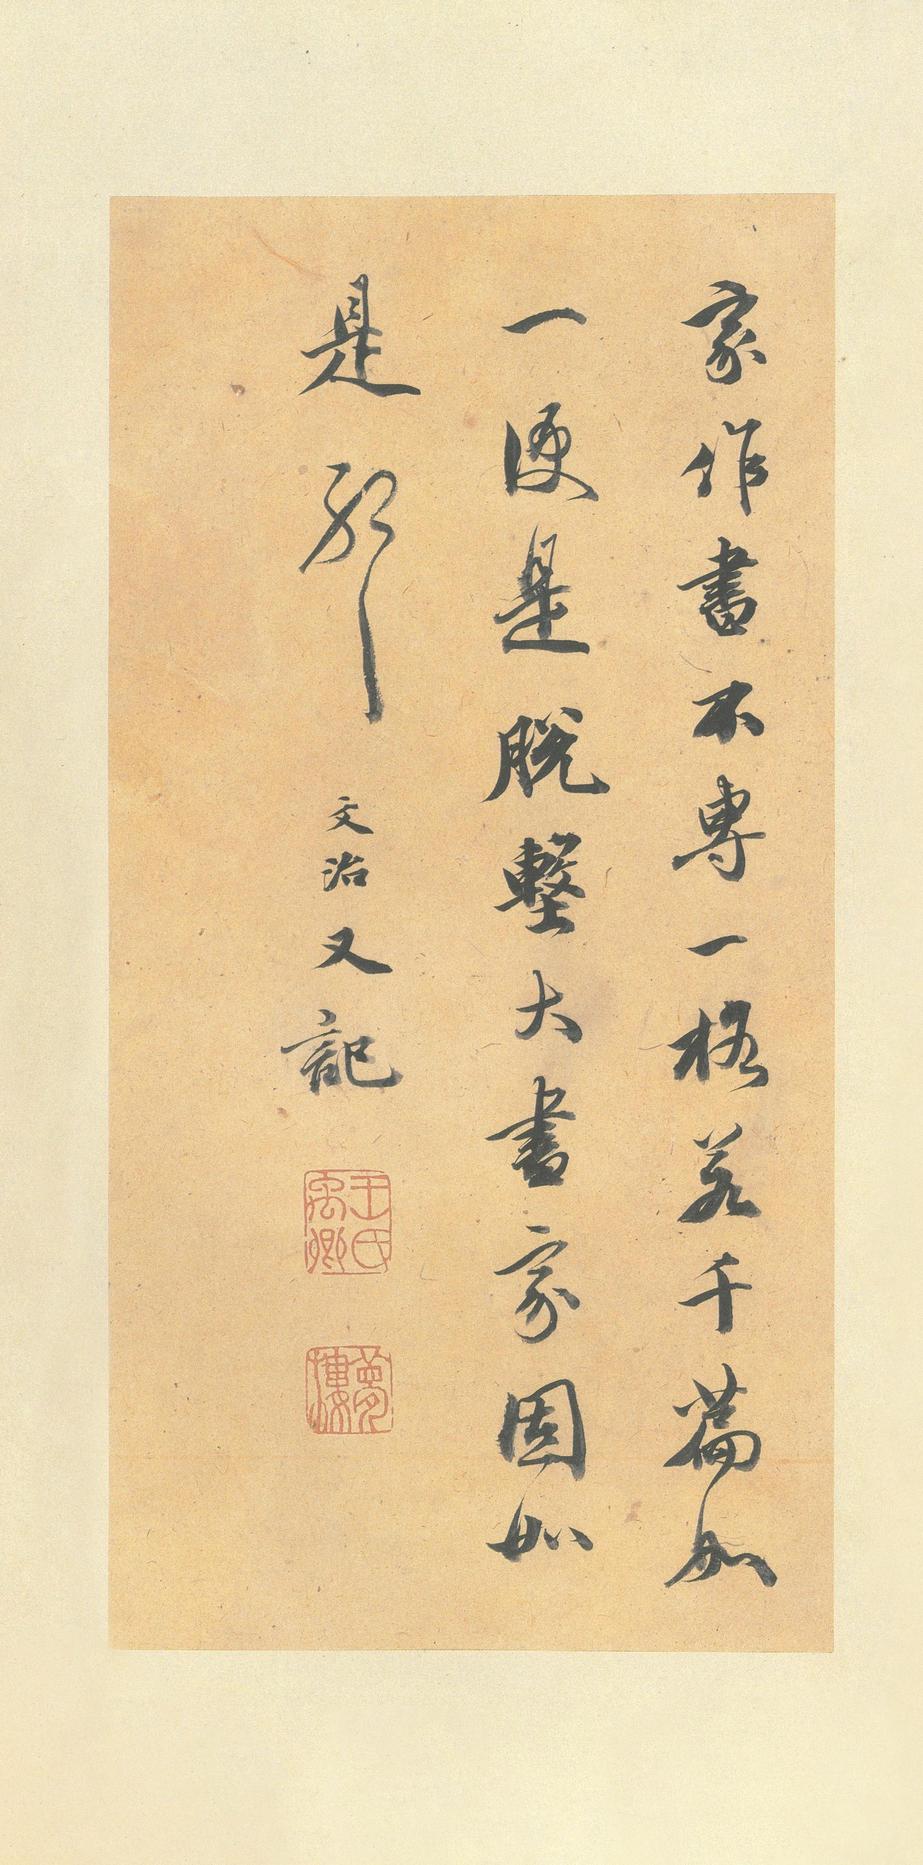 家作書不專一格若千篇如
一便是脫墼大書家固如
是耶
文治又記
王氏禹卿
夢樓